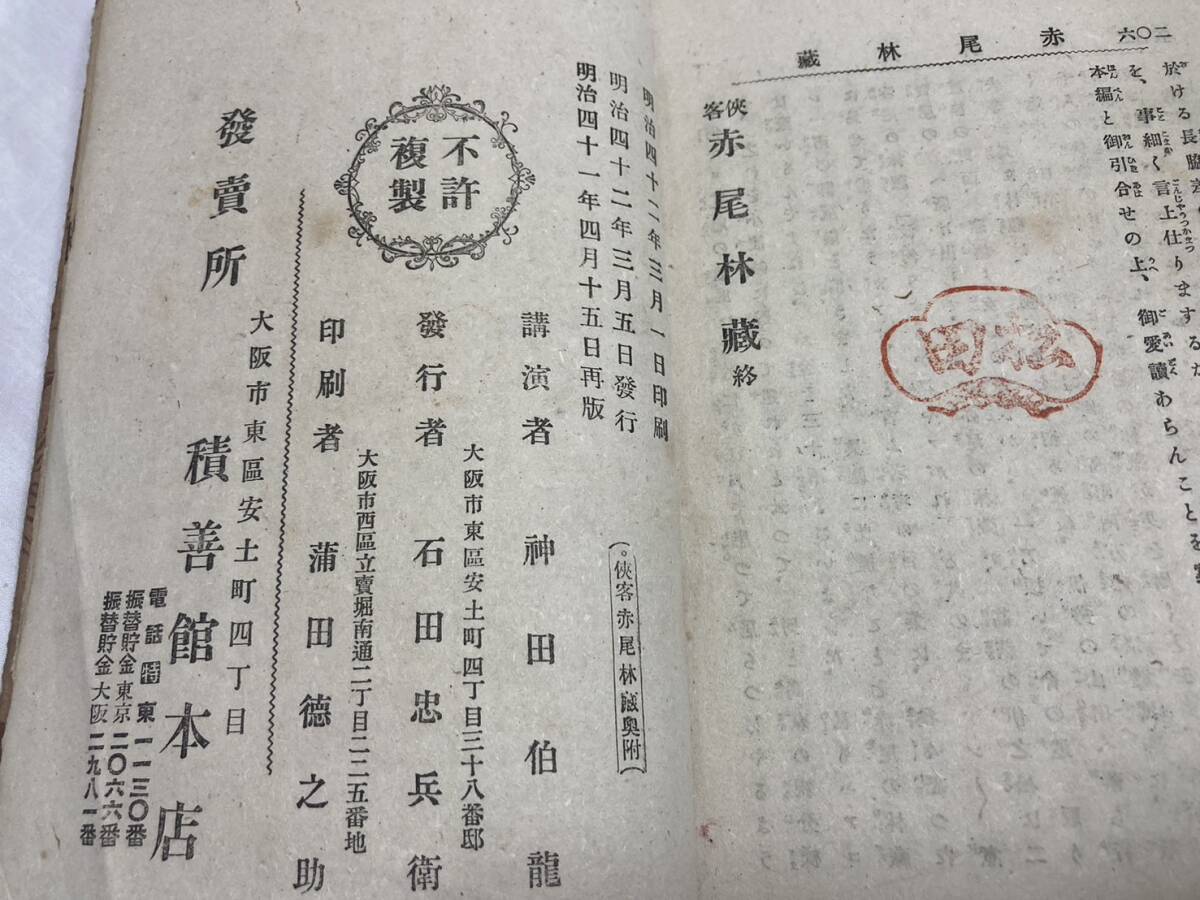 二〇六 赤尾林藏
於ける長脇
を、事細く言上仕りまするが
本編と御引合せの上、御愛讀あらんことを
俠客 赤尾林藏 終
松田
(。俠客赤尾林藏奧附)
明治四十二年三月一日印刷
明治四十二年三月五日發行
明治四十一年四月十五日再版
不許複製
講演者 神田伯龍
大阪市東區安土町四丁目三十八番邸
發行者 石田忠兵衛
大阪市西區立賣堀南通二丁目二二五番地
印刷者 蒲田德之助
大阪市東區安土町四丁目
發賣所 積善館本店
電話特東一一三〇番
振替貯金東京二〇六六番
振替貯金大阪二九八一番